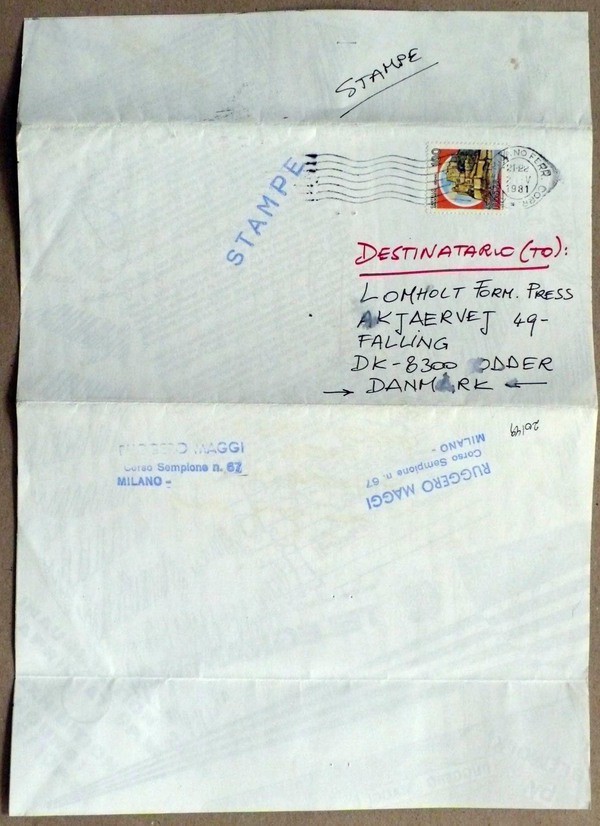 STAMPE
STAMPE
1981
DESTINATARIO (TO):
LOMHOLT FORM. PRESS
AKJAERVEJ 49-
FALLING
DK-8300 ODDER
→ DANMARK ←
20/49
RUGGERO MAGGI
Corso Sempione n. 67
MILANO -
RUGGERO MAGGI
Corso Sempione n. 67
MILANO -